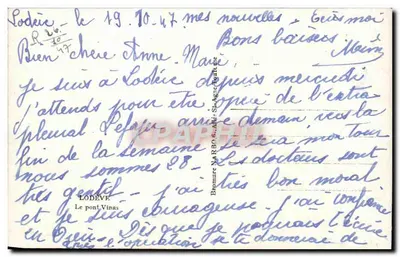 Lodève - le 19.10.47
mes nouvelles. Ecris moi
Bons baisers
R 20
10
47
Bien chère Anne-Marie,
Je suis à Lodève depuis mercredi
j'attends pour être opéré de l'extra
pleural Lefapu arrive demain vers la
fin de la semaine sera mon tour
nous sommes 28. Les docteurs sont
très gentils - j'ai très bon moral
et je suis courageuse. j'ai confiance
en Dieu. Dès que je pourrais t'écrire
après l'opération je te donnerai de
LODÈVE
Le pont Vinas